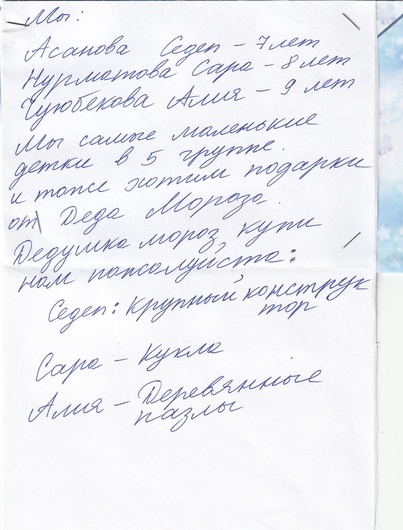 Мы:
Асанова Седеп - 7 лет
Нурматова Сара - 8 лет
Чуюбекова Алия - 9 лет
Мы самые маленькие
детки в 5 группе.
и тоже хотим подарки
от Деда Мороза.
Дедушка мороз, купи
нам пожалуйста:
Седеп: крупный конструк
тор
Сара - Кукла
Алия - Деревянные
пазлы